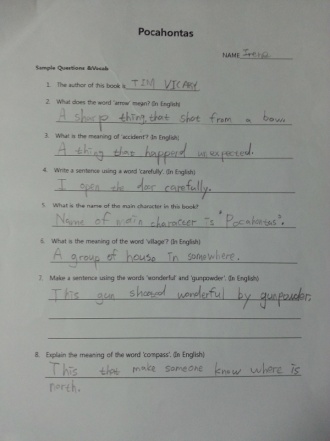 Pocahontas
NAME Irene
Sample Questions &Vocab
1. The author of this book is TIM VICARY
2. What does the word 'arrow' mean? (In English)
A sharp thing, that shot from a bow.
3. What is the meaning of 'accident'? (In English)
A thing that happend unexpected.
4. Write a sentence using a word 'carefully'. (In English)
I open the dor carefully.
5. What is the name of the main character in this book?
Name of main character is "Pocahontas".
6. What is the meaning of the word 'village'? (In English)
A group of house in somewhere.
7. Make a sentence using the words 'wonderful' and 'gunpowder'. (In English)
This gun shooed wonderful by gunpowder.
8. Explain the meaning of the word 'compass'. (In English)
This that make someone know where is
north.